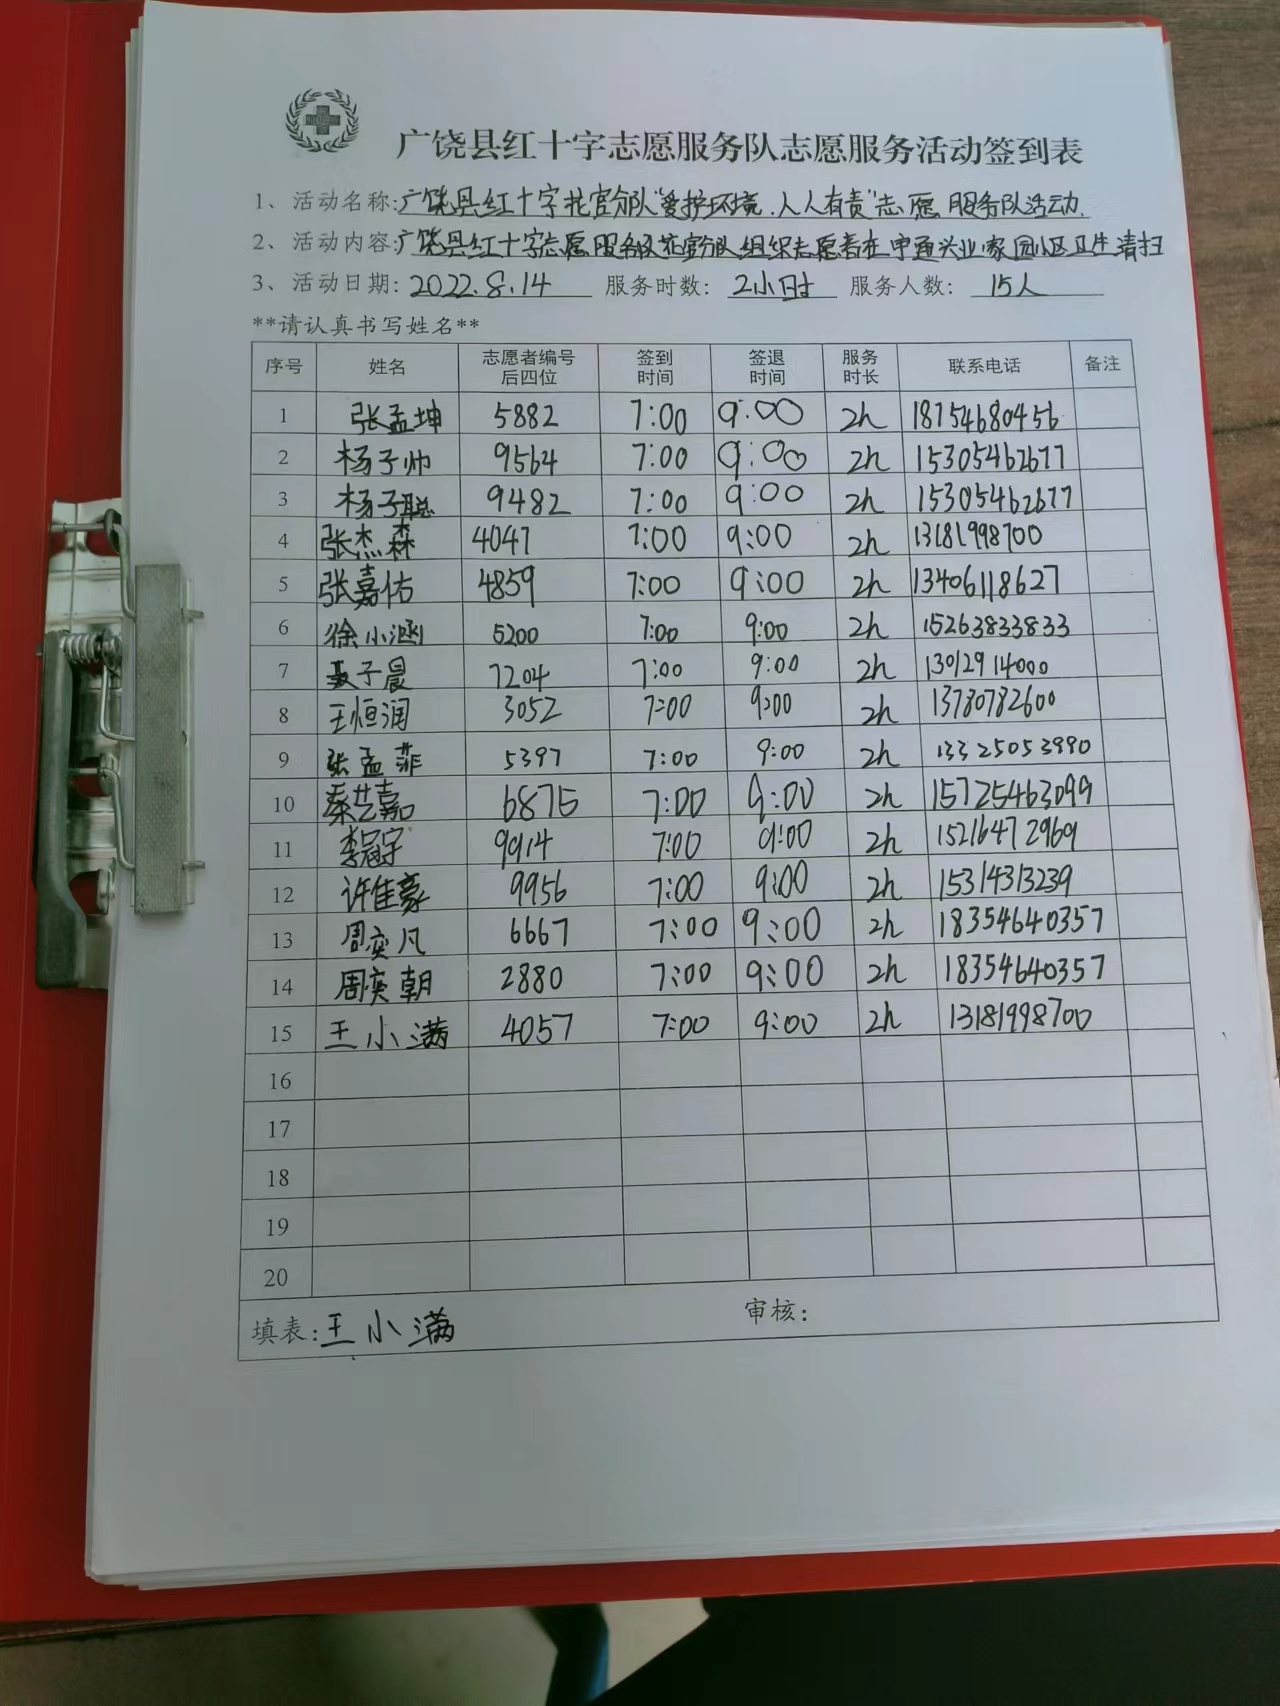 广饶县红十字志愿服务队志愿服务活动签到表
1、活动名称:广饶县红十字花官分队"爱护环境,人人有责"志愿服务队活动.
2、活动内容:广饶县红十字志愿服务队花官分队组织志愿者在中通兴业家园小区卫生清扫
3、活动日期: 2022.8.14 服务时数: 2小时 服务人数: 15人
**请认真书写姓名**
序号 姓名 志愿者编号后四位 签到时间 签退时间 服务时长 联系电话 备注
1 张孟坤 5882 7:00 9:00 2h 18754680456
2 杨子帅 9564 7:00 9:00 2h 15305462677
3 杨子聪 9482 7:00 9:00 2h 15305462677
4 张杰森 4047 7:00 9:00 2h 13181998700
5 张嘉佑 4859 7:00 9:00 2h 13406118627
6 徐小涵 5200 7:00 9:00 2h 15263833833
7 聂子晨 7204 7:00 9:00 2h 13012914000
8 王恒润 3052 7:00 9:00 2h 13780782600
9 张孟菲 5397 7:00 9:00 2h 13325053990
10 秦艺嘉 6875 7:00 9:00 2h 15725463099
11 李冠宇 9914 7:00 9:00 2h 15216472969
12 许佳豪 9956 7:00 9:00 2h 15314313239
13 周奕凡 6667 7:00 9:00 2h 18354640357
14 周奕朝 2880 7:00 9:00 2h 18354640357
15 王小满 4057 7:00 9:00 2h 13181998700
16
17
18
19
20
填表:王小满 审核: